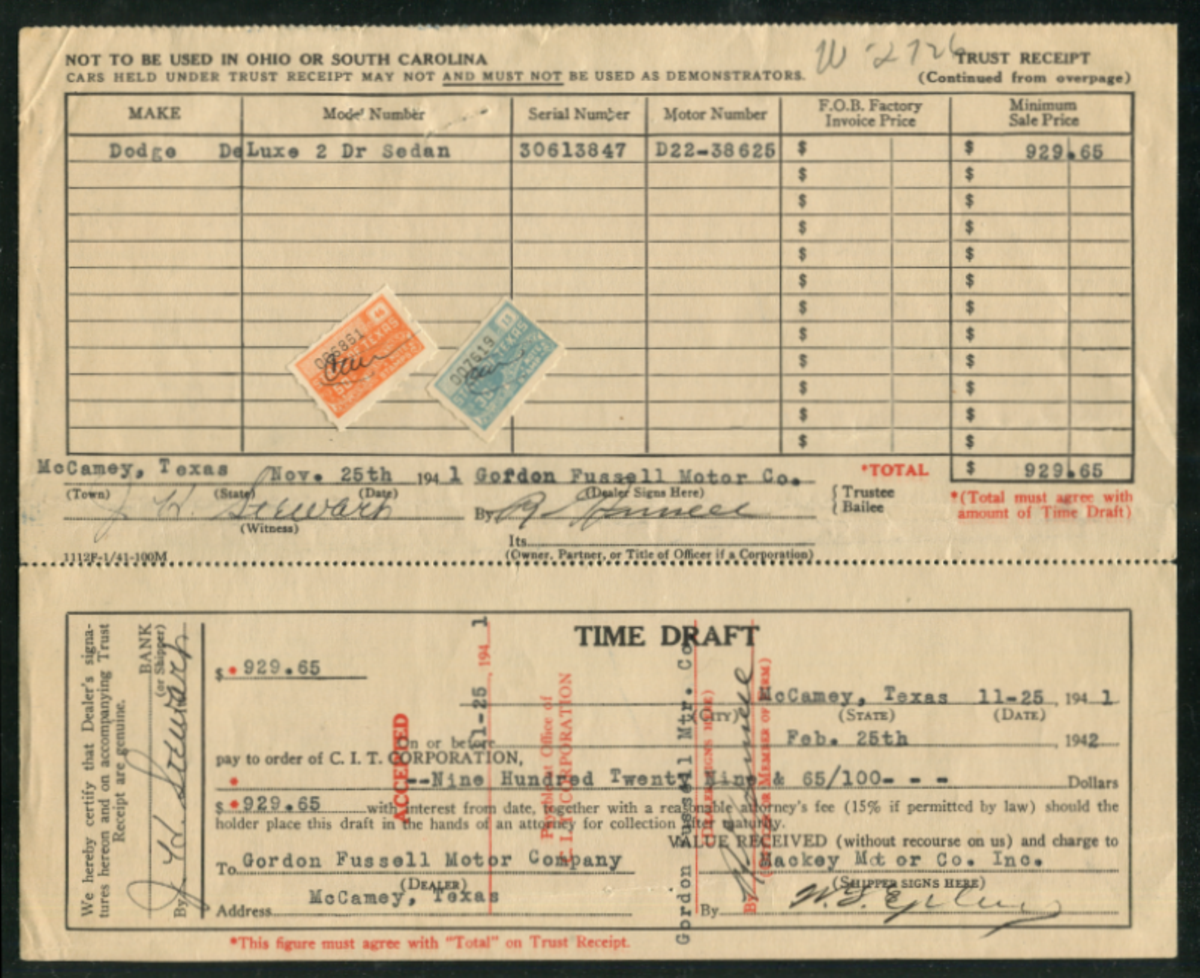 NOT TO BE USED IN OHIO OR SOUTH CAROLINA
CARS HELD UNDER TRUST RECEIPT MAY NOT AND MUST NOT BE USED AS DEMONSTRATORS.
W 2726
TRUST RECEIPT
(Continued from overpage)
MAKE Model Number Serial Number Motor Number F.O.B. Factory Invoice Price Minimum Sale Price
Dodge DeLuxe 2 Dr Sedan 30613847 D22-38625 $ $ 929.65
$ $
$ $
$ $
$ $
$ $
$ $
$ $
$ $
$ $
$ $
$ $
006861
TEXAS
007619
TEXAS
McCamey, Texas Nov. 25th 1941 Gordon Fussell Motor Co. *TOTAL $ 929.65
(Town) (State) (Date) (Dealer Signs Here) { Trustee
{ Bailee
*(Total must agree with
amount of Time Draft)
J. H. Stewart By
(Witness)
Its
1112F-1/41-100M (Owner, Partner, or Title of Officer if a Corporation)
We hereby certify that Dealer's signa-
tures hereon and on accompanying Trust
Receipt are genuine.
BANK
(or Shipper)
By J. H. Stewart
TIME DRAFT
$ * 929.65
McCamey, Texas 11-25 1941
(CITY) (STATE) (DATE)
On or before Feb. 25th, 1942
pay to order of C. I. T. CORPORATION,
* --Nine Hundred Twenty Nine & 65/100- - - Dollars
$ * 929.65 with interest from date, together with a reasonable attorney's fee (15% if permitted by law) should the
holder place this draft in the hands of an attorney for collection after maturity.
VALUE RECEIVED (without recourse on us) and charge to
To Gordon Fussell Motor Company Mackey Motor Co. Inc.
(DEALER) (SHIPPER SIGNS HERE)
Address McCamey, Texas By
ACCEPTED
11-25 1941
Payable at Office of
C. I. T. CORPORATION
Gordon Fussell Mtr. Co
(DEALER SIGNS HERE)
By
*This figure must agree with "Total" on Trust Receipt.